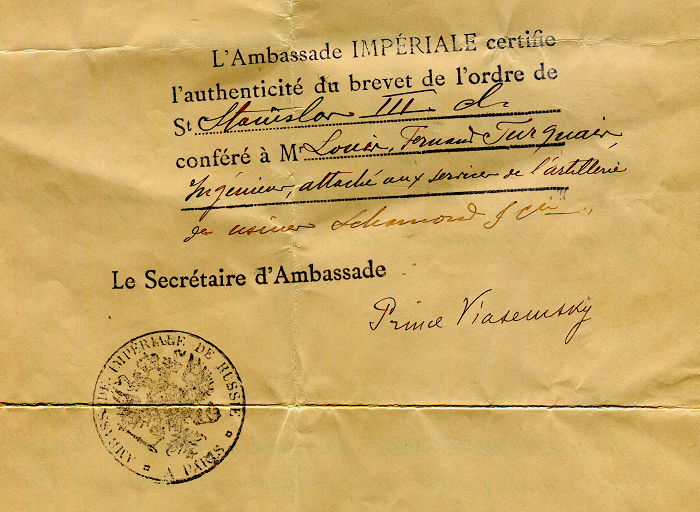 L'Ambassade IMPÉRIALE certifie
l'authenticité du brevet de l'ordre de
St Stanislas III cl.
conféré à Mr Louis, Fernand Turquais
Ingénieur, attaché aux services de l'artillerie
des usines Schamond & Cie
Le Secrétaire d'Ambassade
Prince Viasemsky
AMBASSADE IMPÉRIALE DE RUSSIE
A PARIS